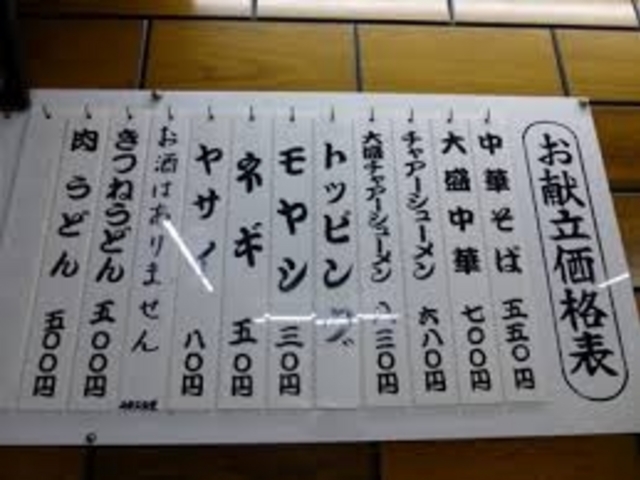 お献立価格表
中華そば 五五〇円
大盛中華 七〇〇円
チャアーシューメン 六八〇円
大盛チャアーシューメン 八三〇円
トッピング
モヤシ 三〇円
ネギ 五〇円
ヤサイ 八〇円
お酒はありません
きつねうどん 五〇〇円
肉うどん 五〇〇円